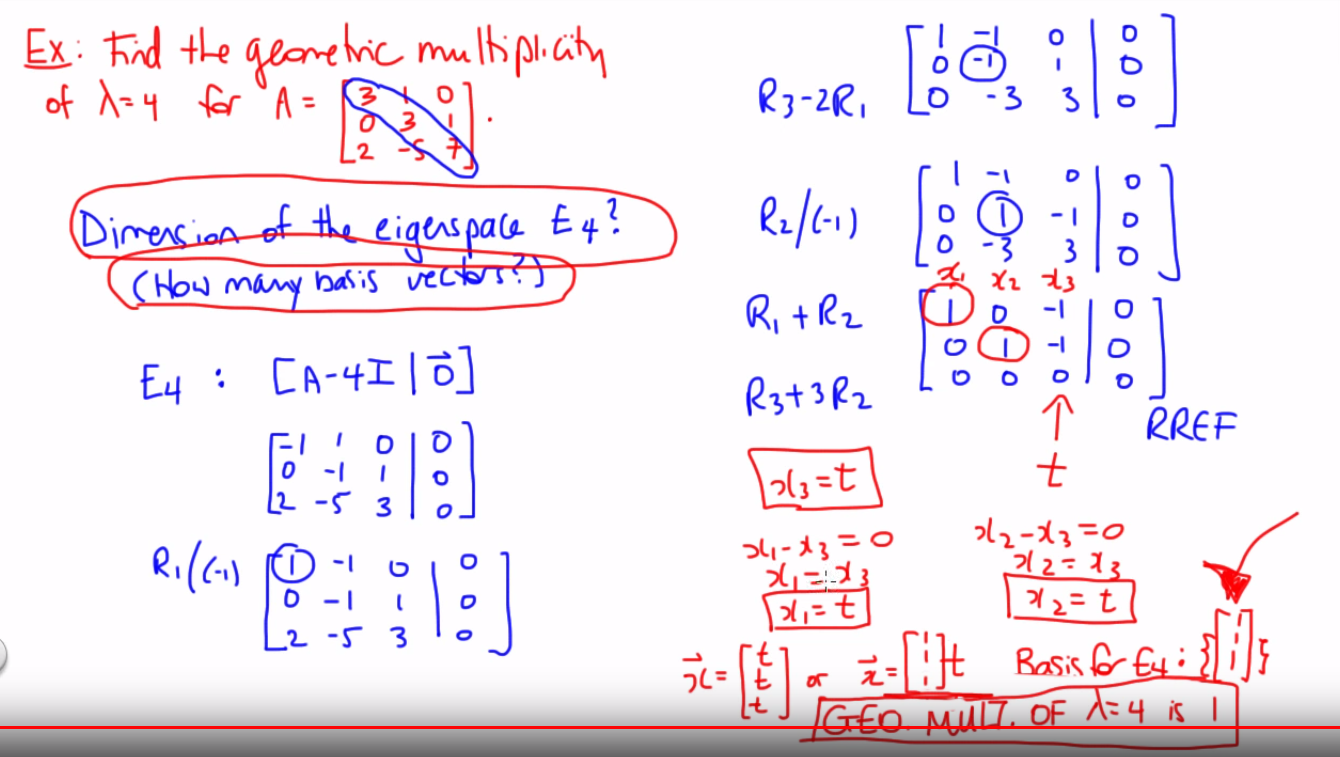 Ex: Find the geometric multiplicity
of λ=4 for A = [3 1 0
0 3 1
2 -5 7].
Dimension of the eigenspace E4?
(How many basis vectors?)
E4 : [A-4I | 0⃗]
[-1 1 0 | 0
0 -1 1 | 0
2 -5 3 | 0]
R1/(-1) [1 -1 0 | 0
0 -1 1 | 0
2 -5 3 | 0]
R3-2R1 [1 -1 0 | 0
0 -1 1 | 0
0 -3 3 | 0]
R2/(-1) [1 -1 0 | 0
0 1 -1 | 0
0 -3 3 | 0]
x1 x2 x3
R1+R2 [1 0 -1 | 0
0 1 -1 | 0
R3+3R2 0 0 0 | 0]
RREF
t
x3=t
x1-x3=0
x1=x3
x1=t
x2-x3=0
x2=x3
x2=t
x⃗=[t
t
t] or x⃗=[1
1
1]t
Basis for E4: {[1
1
1]}
GEO. MULT. OF λ=4 is 1